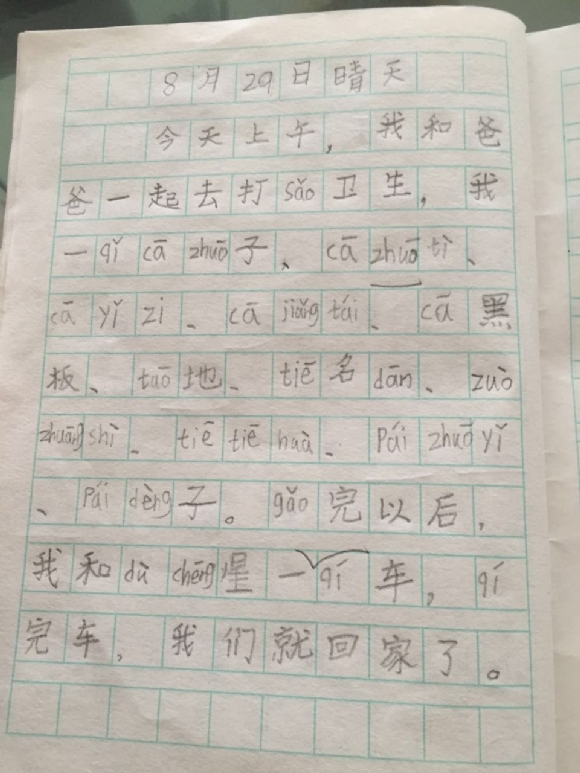 8月29日晴天
今天上午，我和爸
爸一起去打sǎo卫生，我
一qǐ cā zhuō子、cā zhuō tì、
cā yǐ zi、cā jiǎng tái、cā黑
板、tuō地、tiē名dān、zuò
zhuāng shì、tiē tiē huà、Pái zhuō yǐ
、Pái dèng子。gǎo完以后，
我和dù chēng星一qí车，qí
完车，我们就回家了。